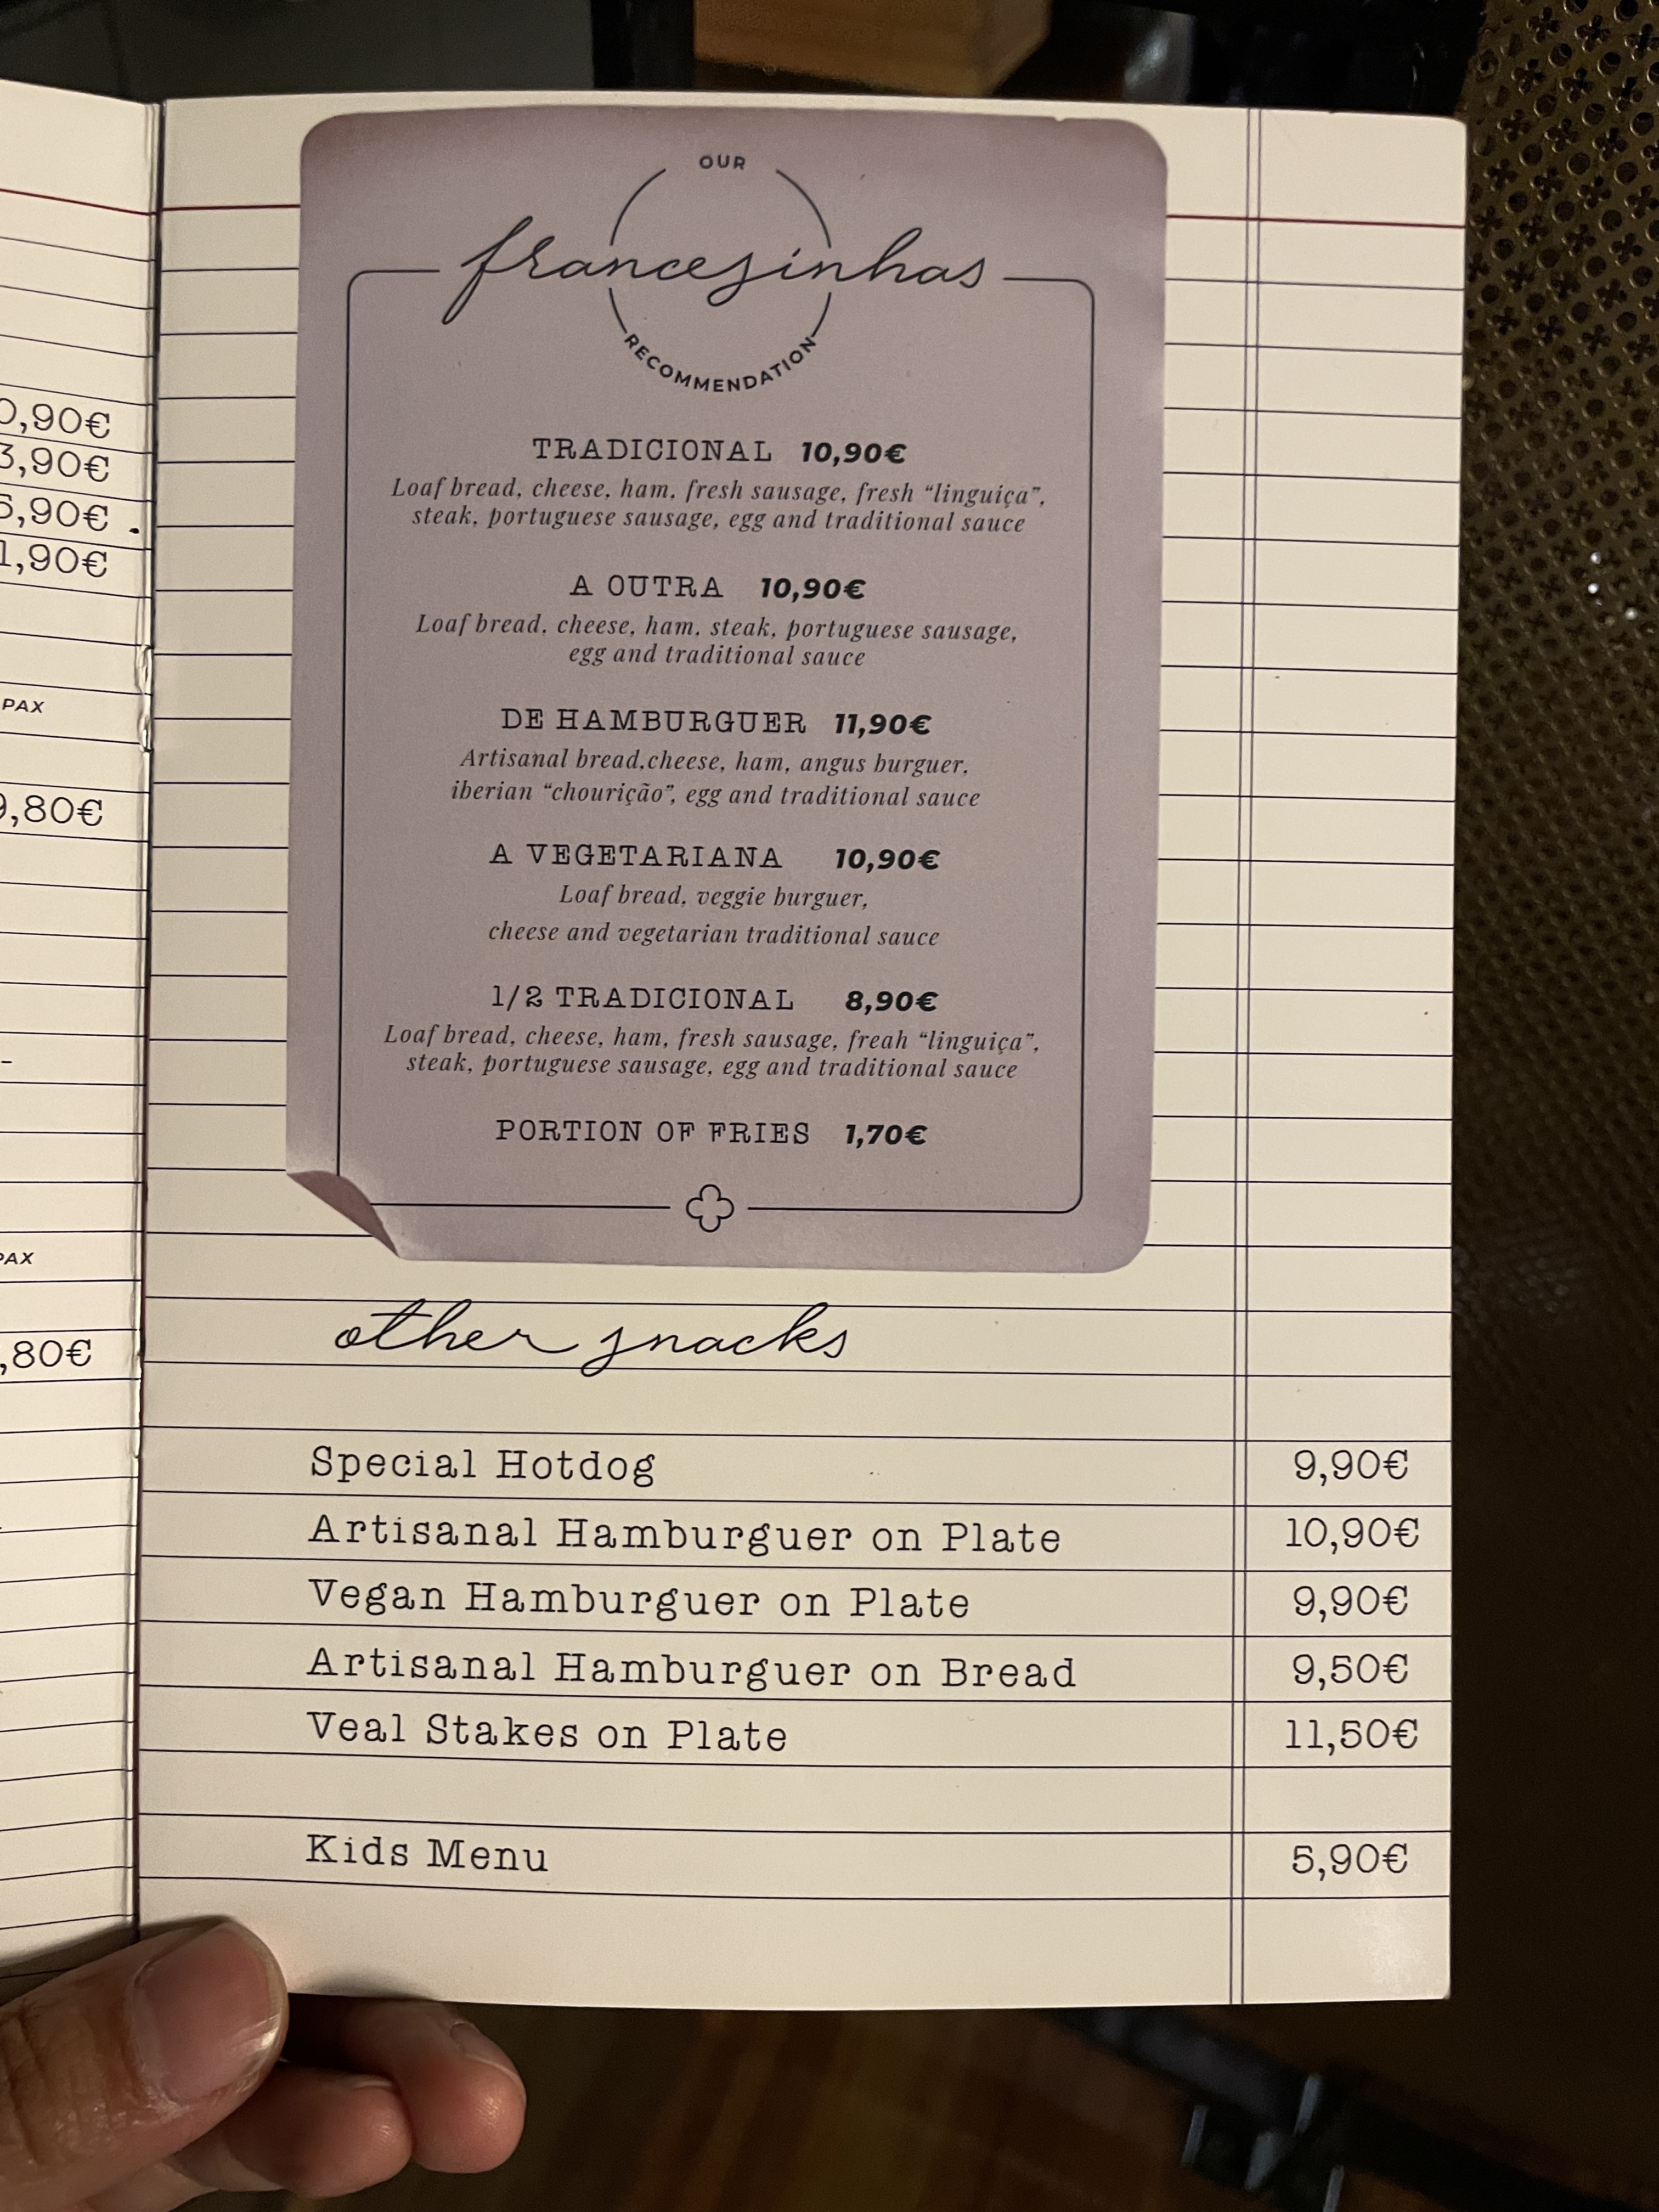 OUR
francesinhas
RECOMMENDATION
TRADICIONAL 10,90€
Loaf bread, cheese, ham, fresh sausage, fresh “linguiça”,
steak, portuguese sausage, egg and traditional sauce
A OUTRA 10,90€
Loaf bread, cheese, ham, steak, portuguese sausage,
egg and traditional sauce
DE HAMBURGUER 11,90€
Artisanal bread,cheese, ham, angus burguer,
iberian “chourição”, egg and traditional sauce
A VEGETARIANA 10,90€
Loaf bread, veggie burguer,
cheese and vegetarian traditional sauce
1/2 TRADICIONAL 8,90€
Loaf bread, cheese, ham, fresh sausage, freah “linguiça”,
steak, portuguese sausage, egg and traditional sauce
PORTION OF FRIES 1,70€
other snacks
Special Hotdog 9,90€
Artisanal Hamburguer on Plate 10,90€
Vegan Hamburguer on Plate 9,90€
Artisanal Hamburguer on Bread 9,50€
Veal Stakes on Plate 11,50€
Kids Menu 5,90€
PAX
PAX